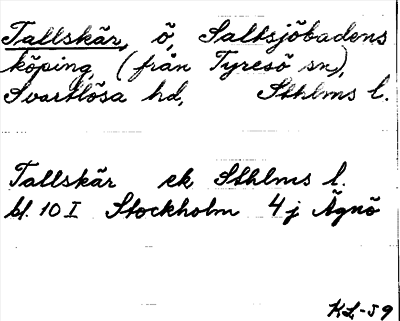 Tallskär, ö, Saltsjöbadens
köping, (från Tyresö sn),
Svartlösa hd, Sthlms l.
Tallskär ek Sthlms l.
bl. 10 I Stockholm 4 j Ägnö
KL-59